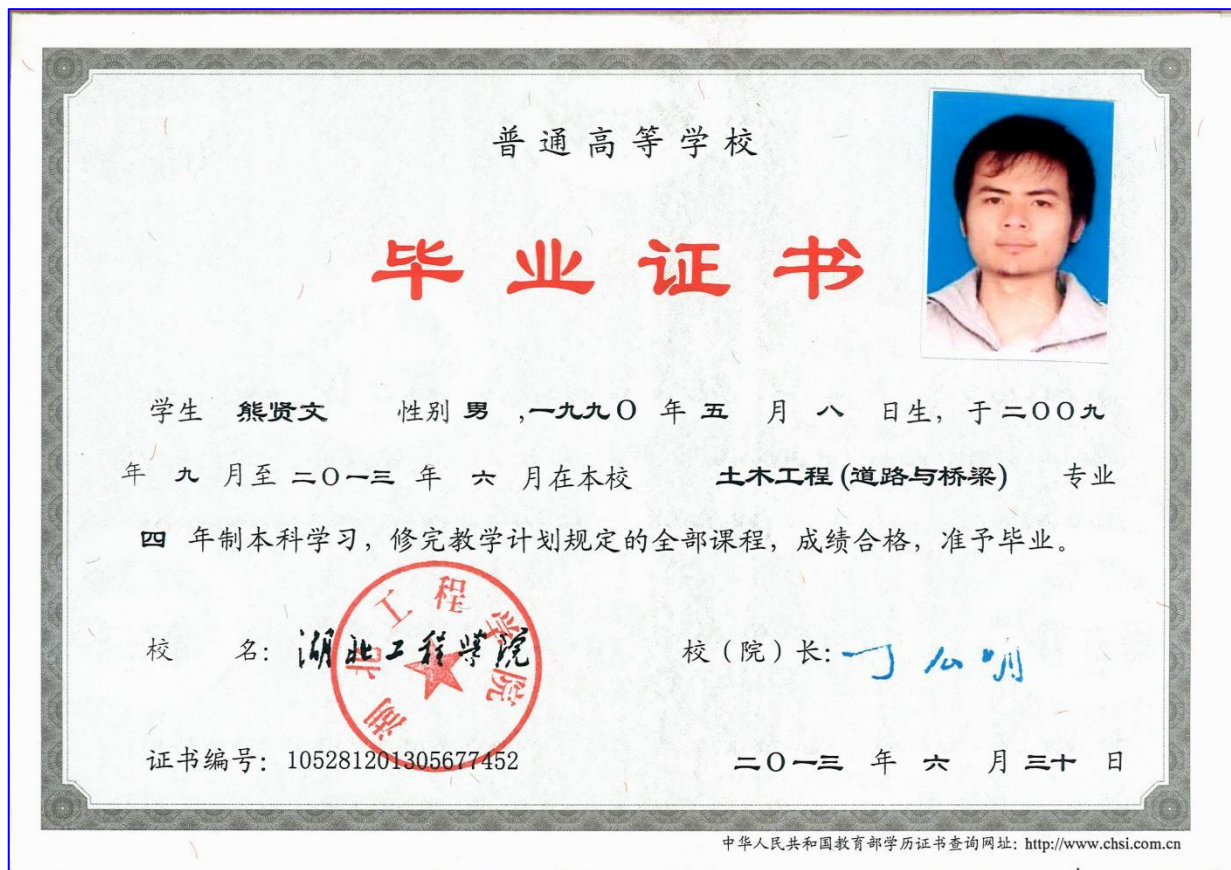 普通高等学校
毕业证书
学生 熊贤文 性别 男 ,一九九〇 年 五 月 八 日生, 于 二〇〇九
年 九 月至 二〇一三 年 六 月在本校 土木工程(道路与桥梁) 专业
四 年制本科学习, 修完教学计划规定的全部课程, 成绩合格, 准予毕业。
校 名: 湖北工程学院 校(院)长: 丁么明
湖北工程学院
证书编号: 105281201305677452 二〇一三 年 六 月 三十 日
中华人民共和国教育部学历证书查询网址: http://www.chsi.com.cn